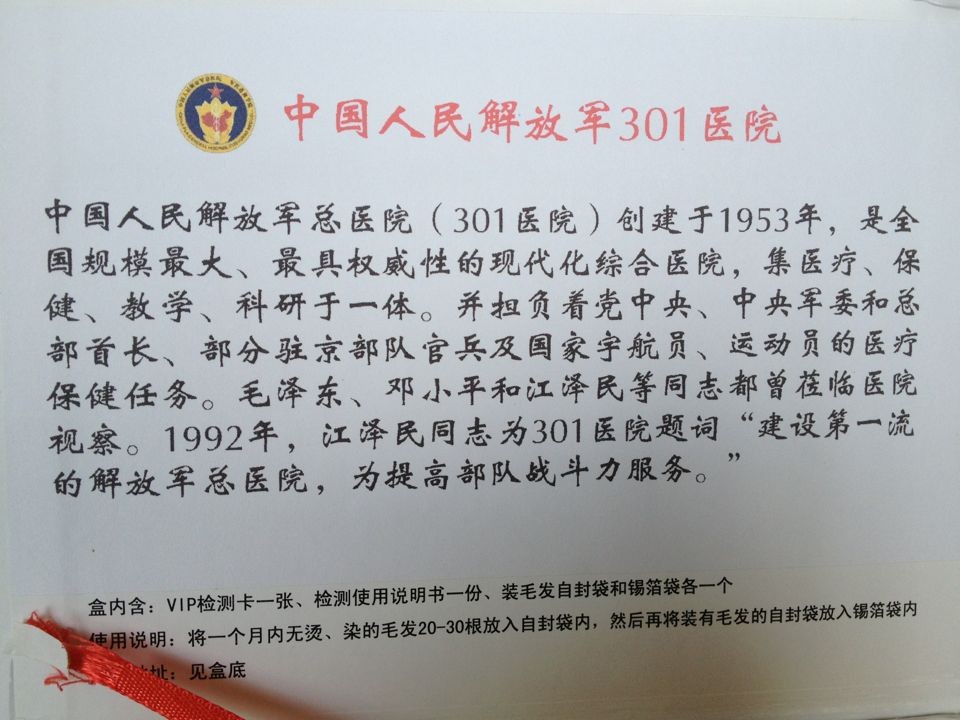 中国人民解放军301医院
中国人民解放军总医院（301医院）创建于1953年，是全
国规模最大、最具权威性的现代化综合医院，集医疗、保
健、教学、科研于一体。并担负着党中央、中央军委和总
部首长、部分驻京部队官兵及国家宇航员、运动员的医疗
保健任务。毛泽东、邓小平和江泽民等同志都曾莅临医院
视察。1992年，江泽民同志为301医院题词“建设第一流
的解放军总医院，为提高部队战斗力服务。”
盒内含：VIP检测卡一张、检测使用说明书一份、装毛发自封袋和锡箔袋各一个
使用说明：将一个月内无烫、染的毛发20-30根放入自封袋内，然后再将装有毛发的自封袋放入锡箔袋内
址：见盒底